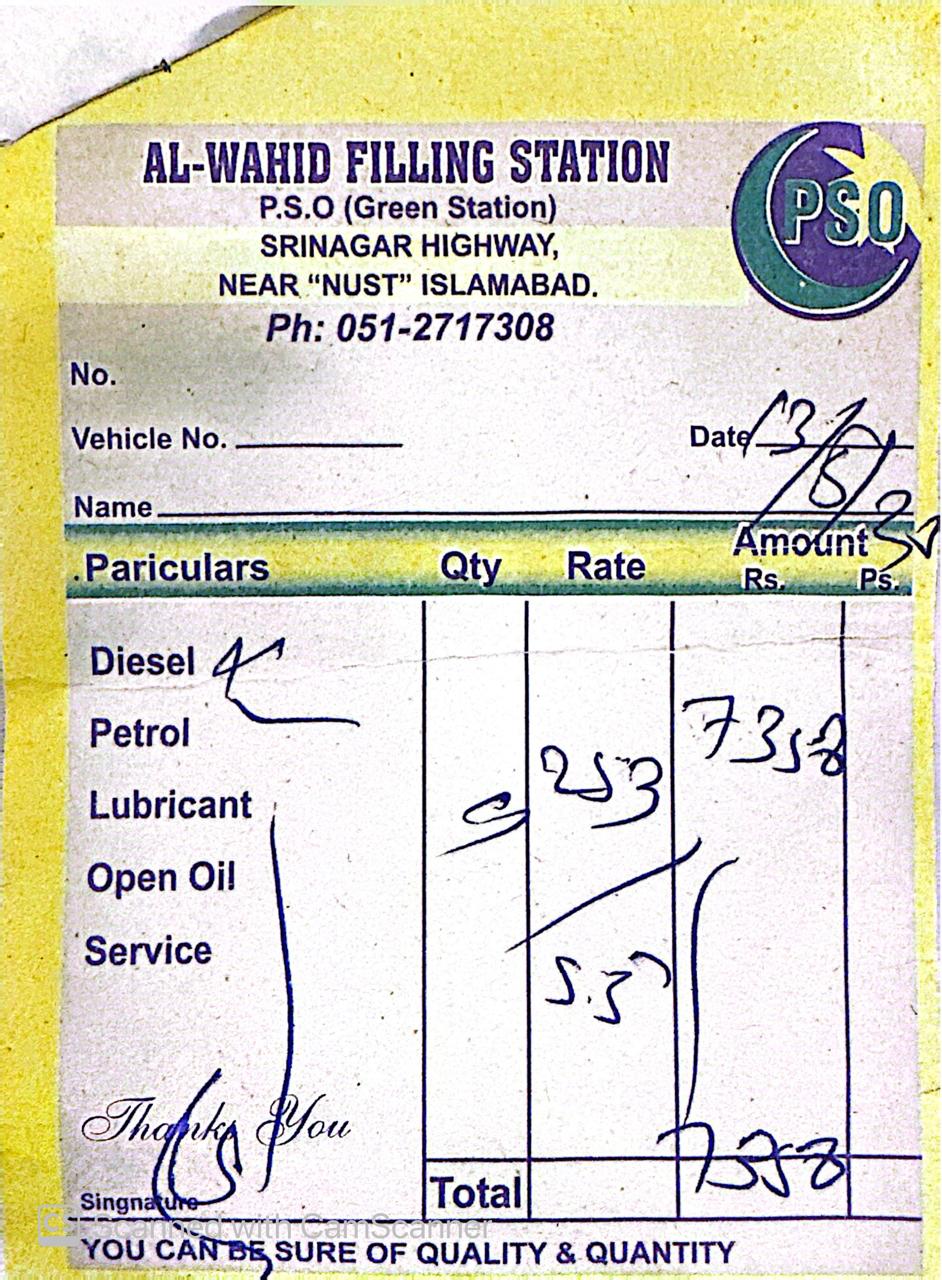 AL-WAHID FILLING STATION
P.S.O (Green Station)
PSO
SRINAGAR HIGHWAY,
NEAR “NUST” ISLAMABAD.
Ph: 051-2717308
No.
Vehicle No.
Date 13/8/
Name
.Pariculars Qty Rate Amount
Rs. Ps.
Diesel
Petrol 7358
Lubricant 253
Open Oil
Service
Thanks You
Total 7358
Singnature
Scanned with CamScanner
YOU CAN BE SURE OF QUALITY & QUANTITY